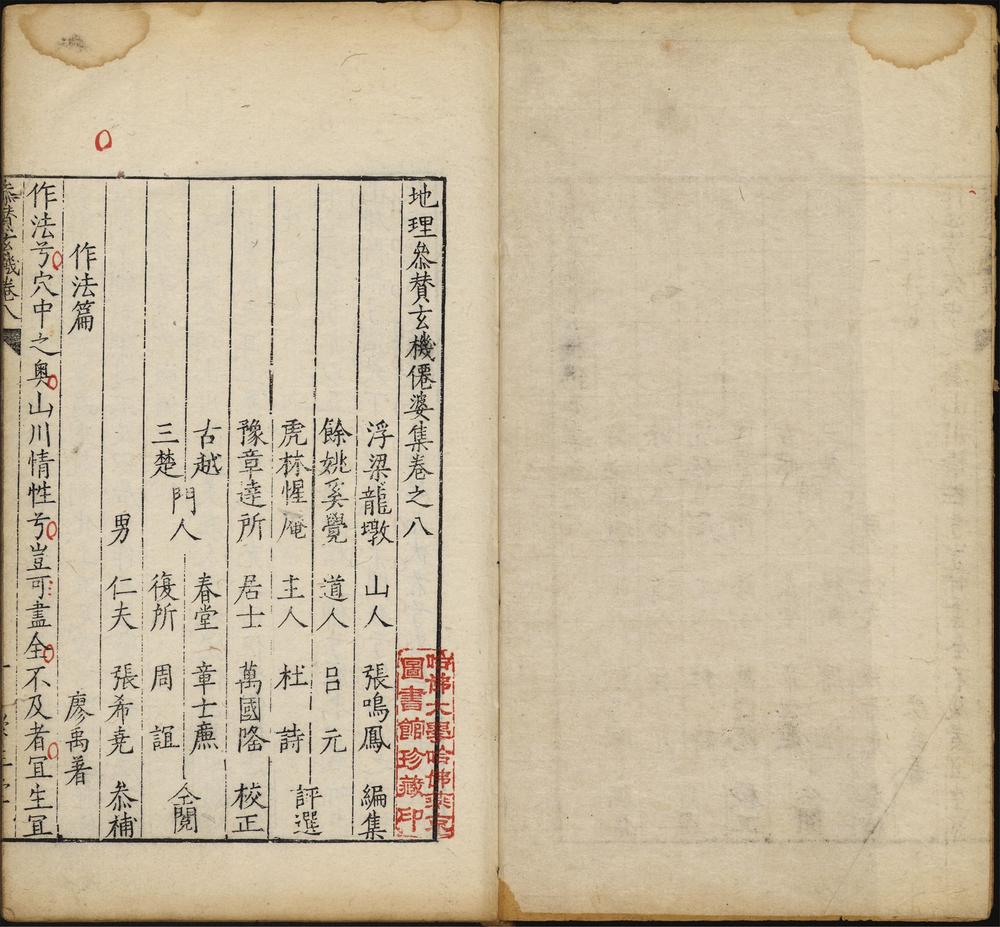 地理叅賛玄機僊婆集卷之八
浮梁龍墩山人張鳴鳳編集
餘姚奚覺道人吕元
評選
虎林惺庵主人杜詩
豫章達所居士萬國隆校正
古越
春堂章士廌
門人
仝閱
三楚
復所周誼
男仁夫張希堯叅補
作法篇
廖禹著
作法兮穴中之奧山川情性兮豈可盡全不及者宜生宜
叅賛玄機卷八
哈佛大學哈佛燕京
圖書館珍藏印